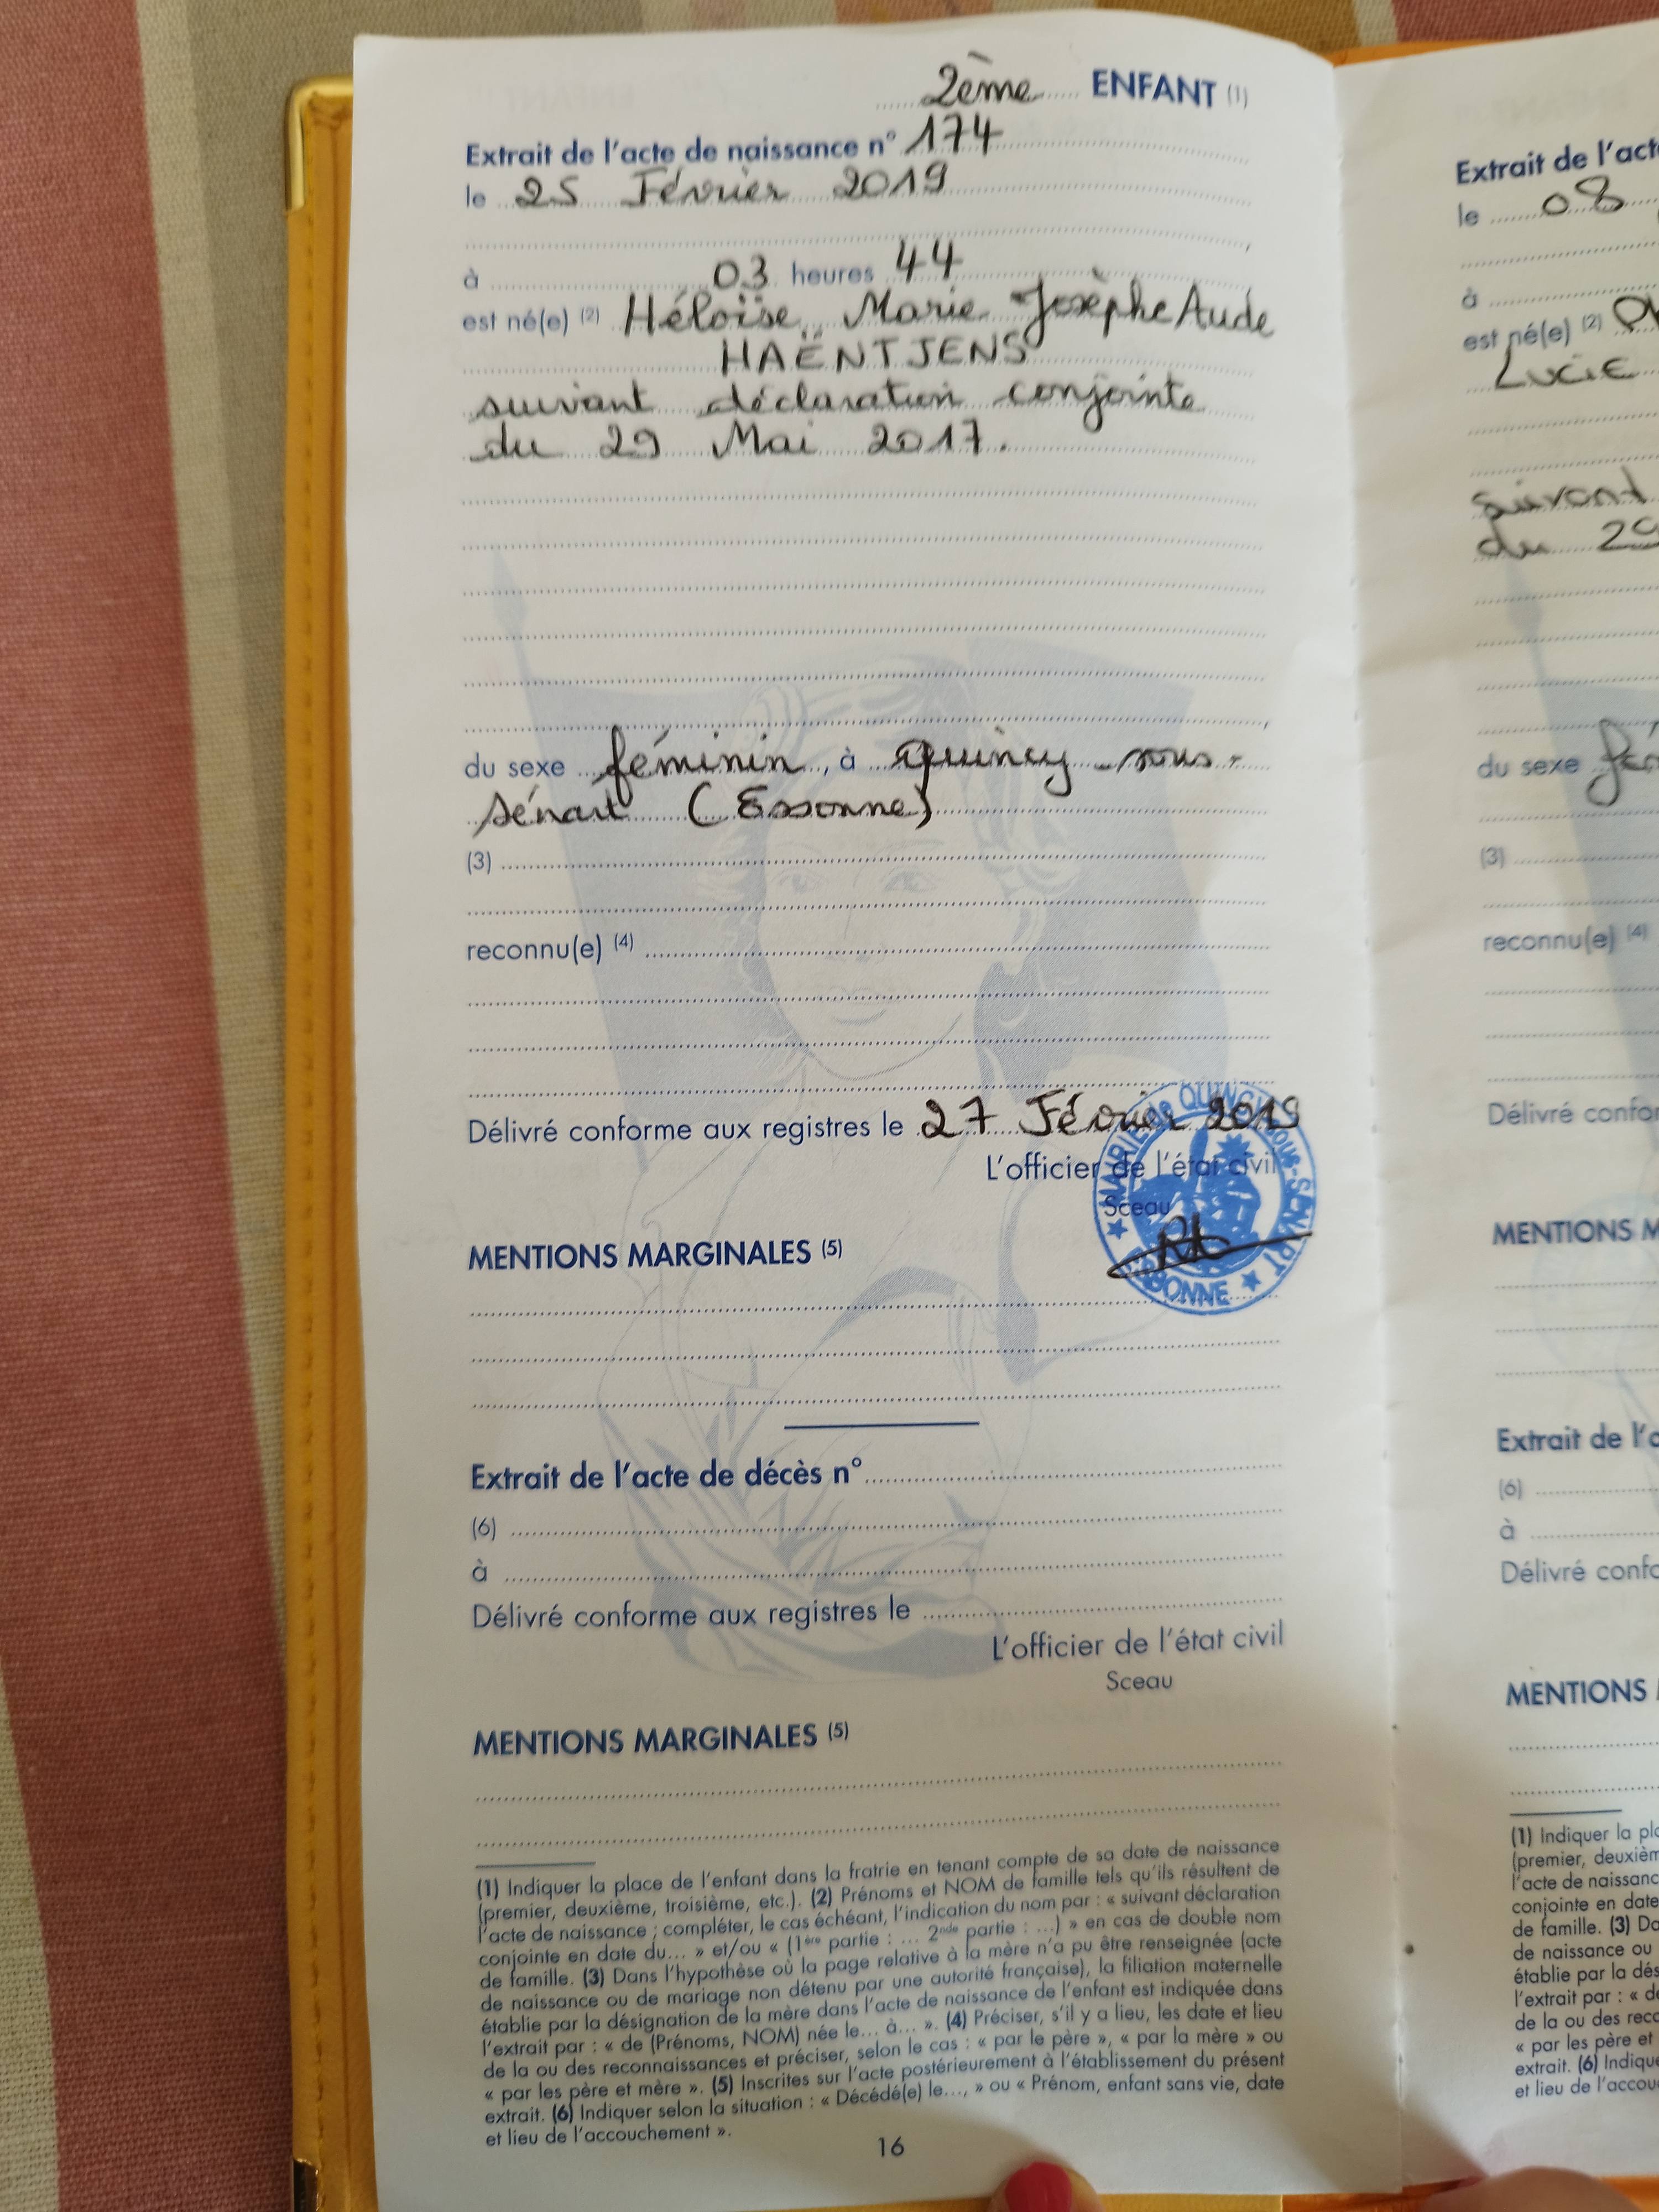 2ème ENFANT (1)
Extrait de l'acte de naissance n° 174
le 25 Février 2019
à 03 heures 44
est né(e) (2) Héloïse, Marie Josèphe Aude
HAËNTJENS
suivant déclaration conjointe
du 29 Mai 2017.
du sexe féminin, à Quincy-sous-
Sénart (Essonne)
(3)
reconnu(e) (4)
Délivré conforme aux registres le 27 Février 2019
L'officier de l'état civil
Sceau
MAIRIE de QUINCY-sous-SENART
ESSONNE
MENTIONS MARGINALES (5)
Extrait de l'acte de décès n°
(6)
à
Délivré conforme aux registres le
L'officier de l'état civil
Sceau
MENTIONS MARGINALES (5)
(1) Indiquer la place de l'enfant dans la fratrie en tenant compte de sa date de naissance
(premier, deuxième, troisième, etc.). (2) Prénoms et NOM de famille tels qu'ils résultent de
l'acte de naissance ; compléter, le cas échéant, l'indication du nom par : « suivant déclaration
conjointe en date du... » et/ou « (1ère partie : ... 2nde partie : ...) » en cas de double nom
de famille. (3) Dans l'hypothèse où la page relative à la mère n'a pu être renseignée (acte
de naissance ou de mariage non détenu par une autorité française), la filiation maternelle
établie par la désignation de la mère dans l'acte de naissance de l'enfant est indiquée dans
l'extrait par : « de (Prénoms, NOM) née le... à... ». (4) Préciser, s'il y a lieu, les date et lieu
de la ou des reconnaissances et préciser, selon le cas : « par le père », « par la mère » ou
« par les père et mère ». (5) Inscrites sur l'acte postérieurement à l'établissement du présent
extrait. (6) Indiquer selon la situation : « Décédé(e) le..., » ou « Prénom, enfant sans vie, date
et lieu de l'accouchement ».
16
Extrait de l'act
le 08
à
est né(e) (2)
Lucie
suivant
du 29
du sexe
(3)
reconnu(e) (4)
Délivré confo
MENTIONS M
Extrait de l'
(6)
à
Délivré confo
MENTIONS
(1) Indiquer la pl
(premier, deuxièm
l'acte de naissanc
conjointe en date
de famille. (3) Da
de naissance ou
établie par la dés
l'extrait par : « de
de la ou des reco
« par les père et
extrait. (6) Indiqu
et lieu de l'accou